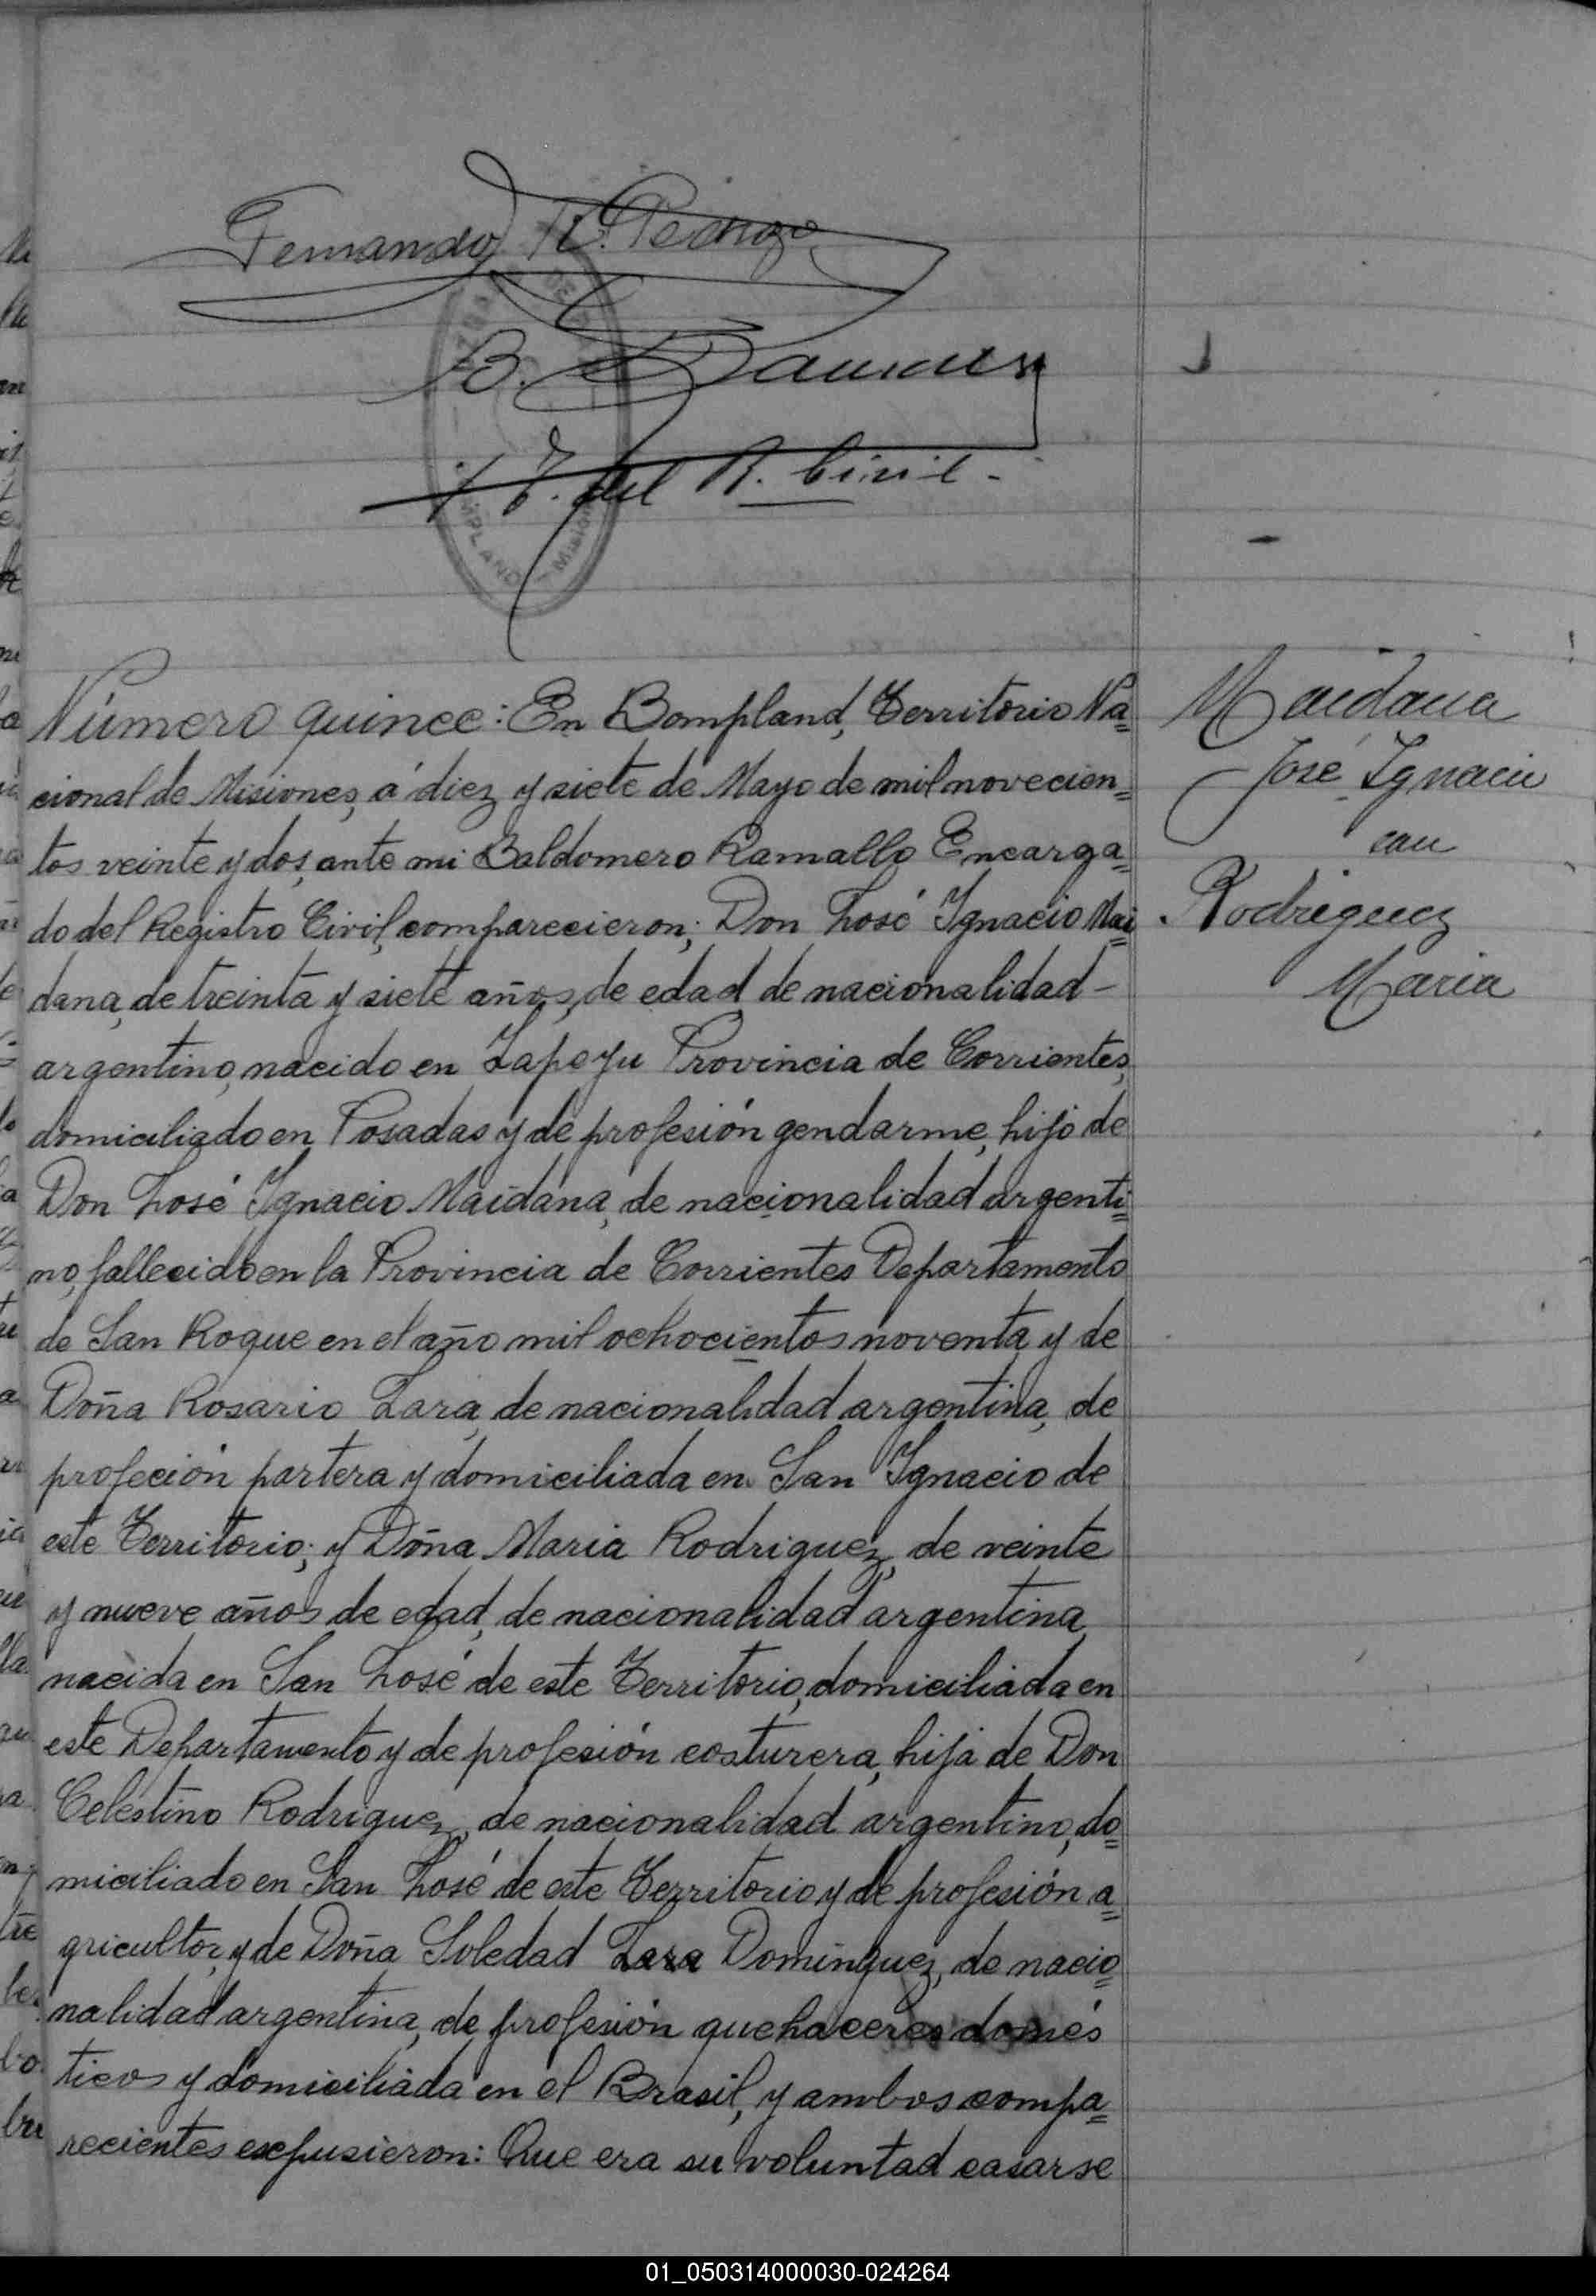 Fernando
B. Ramallo
del R. Civil.
Número quince: En Bompland, Territorio Na=
cional de Misiones, á diez y siete de Mayo de mil novecien=
tos veinte y dos, ante mi Baldomero Ramallo Encarga=
do del Registro Civil, comparecieron; Don José Ignacio Mai=
dana, de treinta y siete años, de edad de nacionalidad -
argentino, nacido en Yapeyu Provincia de Corrientes,
domiciliado en Posadas y de profesión gendarme, hijo de
Don José Ignacio Maidana, de nacionalidad argenti=
no, fallecido en la Provincia de Corrientes Departamento
de San Roque en el año mil ochocientos noventa y de
Doña Rosario Lara, de nacionalidad argentina, de
profeción partera y domiciliada en San Ignacio de
este Territorio; y Doña Maria Rodriguez, de veinte
y nueve años de edad, de nacionalidad argentina,
nacida en San José de este Territorio, domiciliada en
este Departamento y de profesión costurera, hija de Don
Celestino Rodriguez, de nacionalidad argentino, do=
miciliado en San José de este Territorio y de profesión a=
gricultor, y de Doña Soledad Lara Dominguez, de nacio=
nalidad argentina, de profesión quehaceres domés
ticos y domiciliada en el Brasil, y ambos compa=
recientes expusieron: Que era su voluntad casarse
Maidana
José Ignacio
con
Rodriguez
Maria
01_050314000030-024264